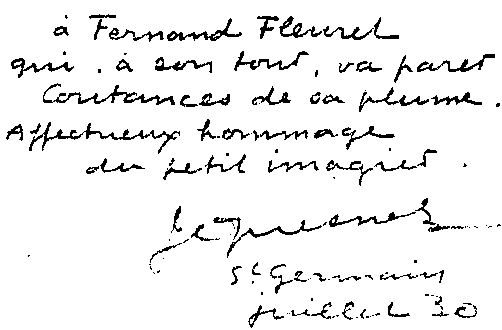 à Fernand Fleuret
qui, à son tour, va parer
Coutances de sa plume.
Affectueux hommage
du petit imagier.
Lequesnel
St Germain
juillet 30